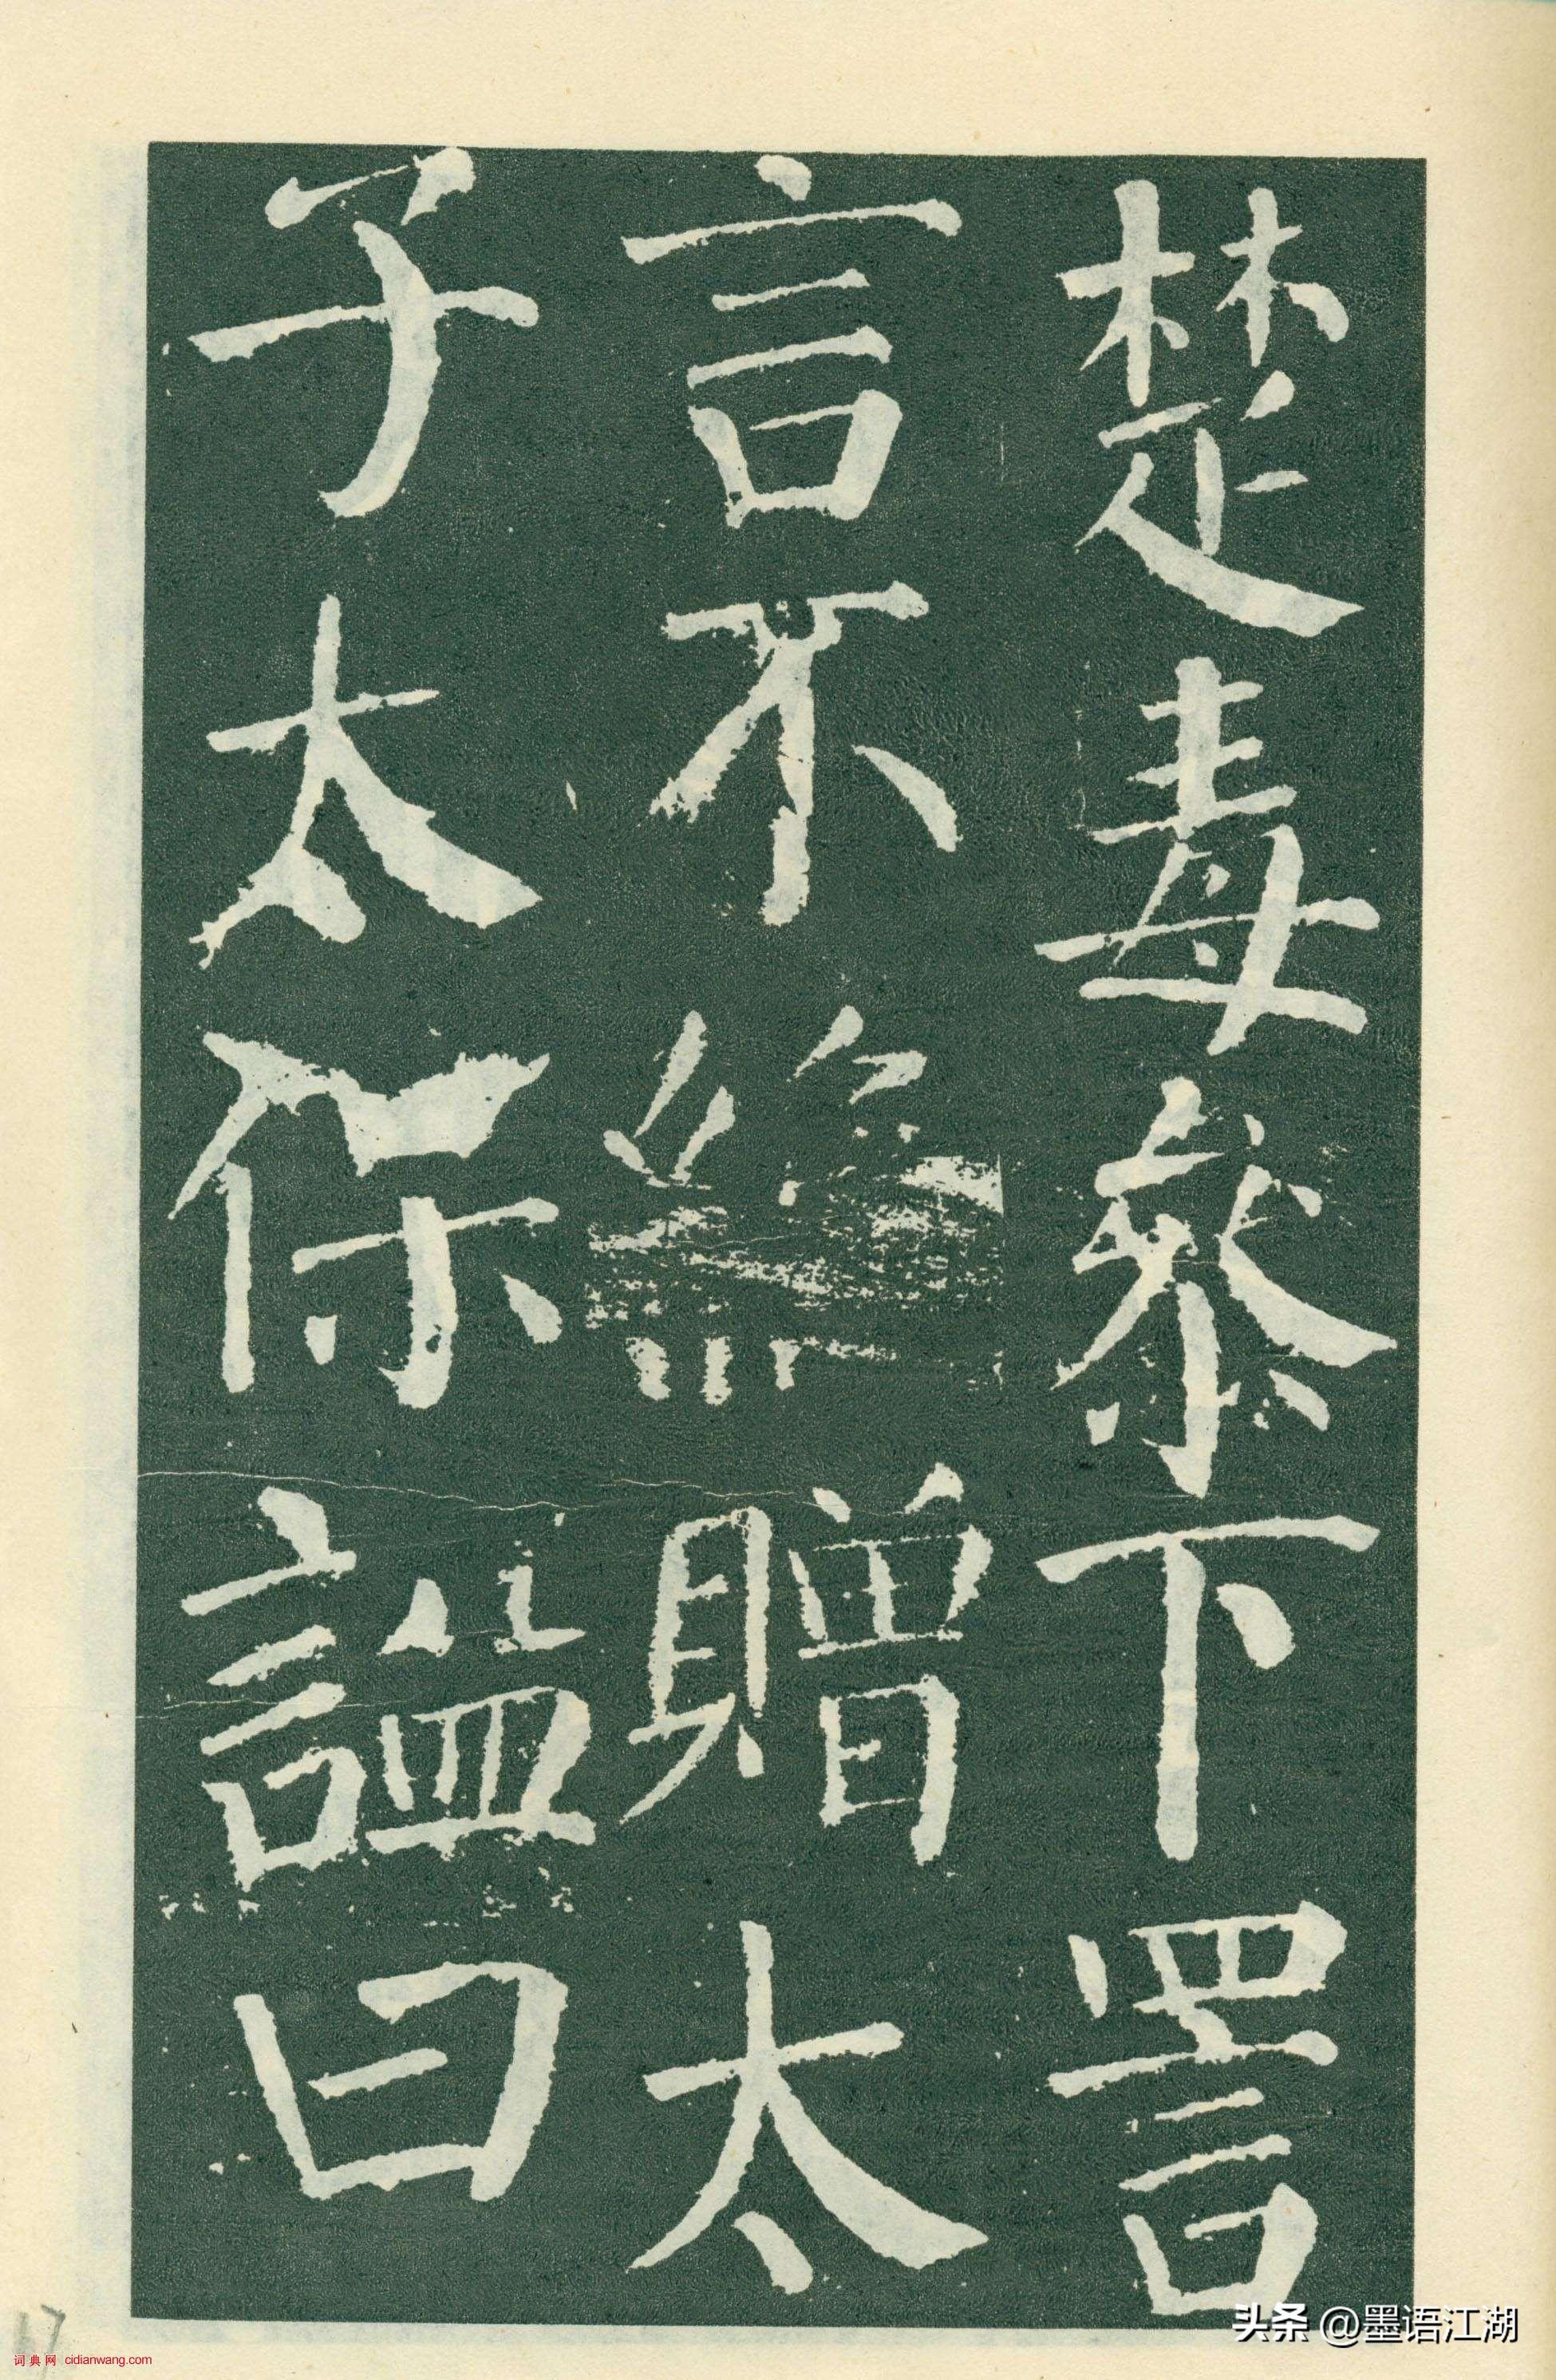 楚毒叅下詈
言不絶贈太
子太保謚曰
17
头条 @墨语江湖
词典网 cidianwang.com